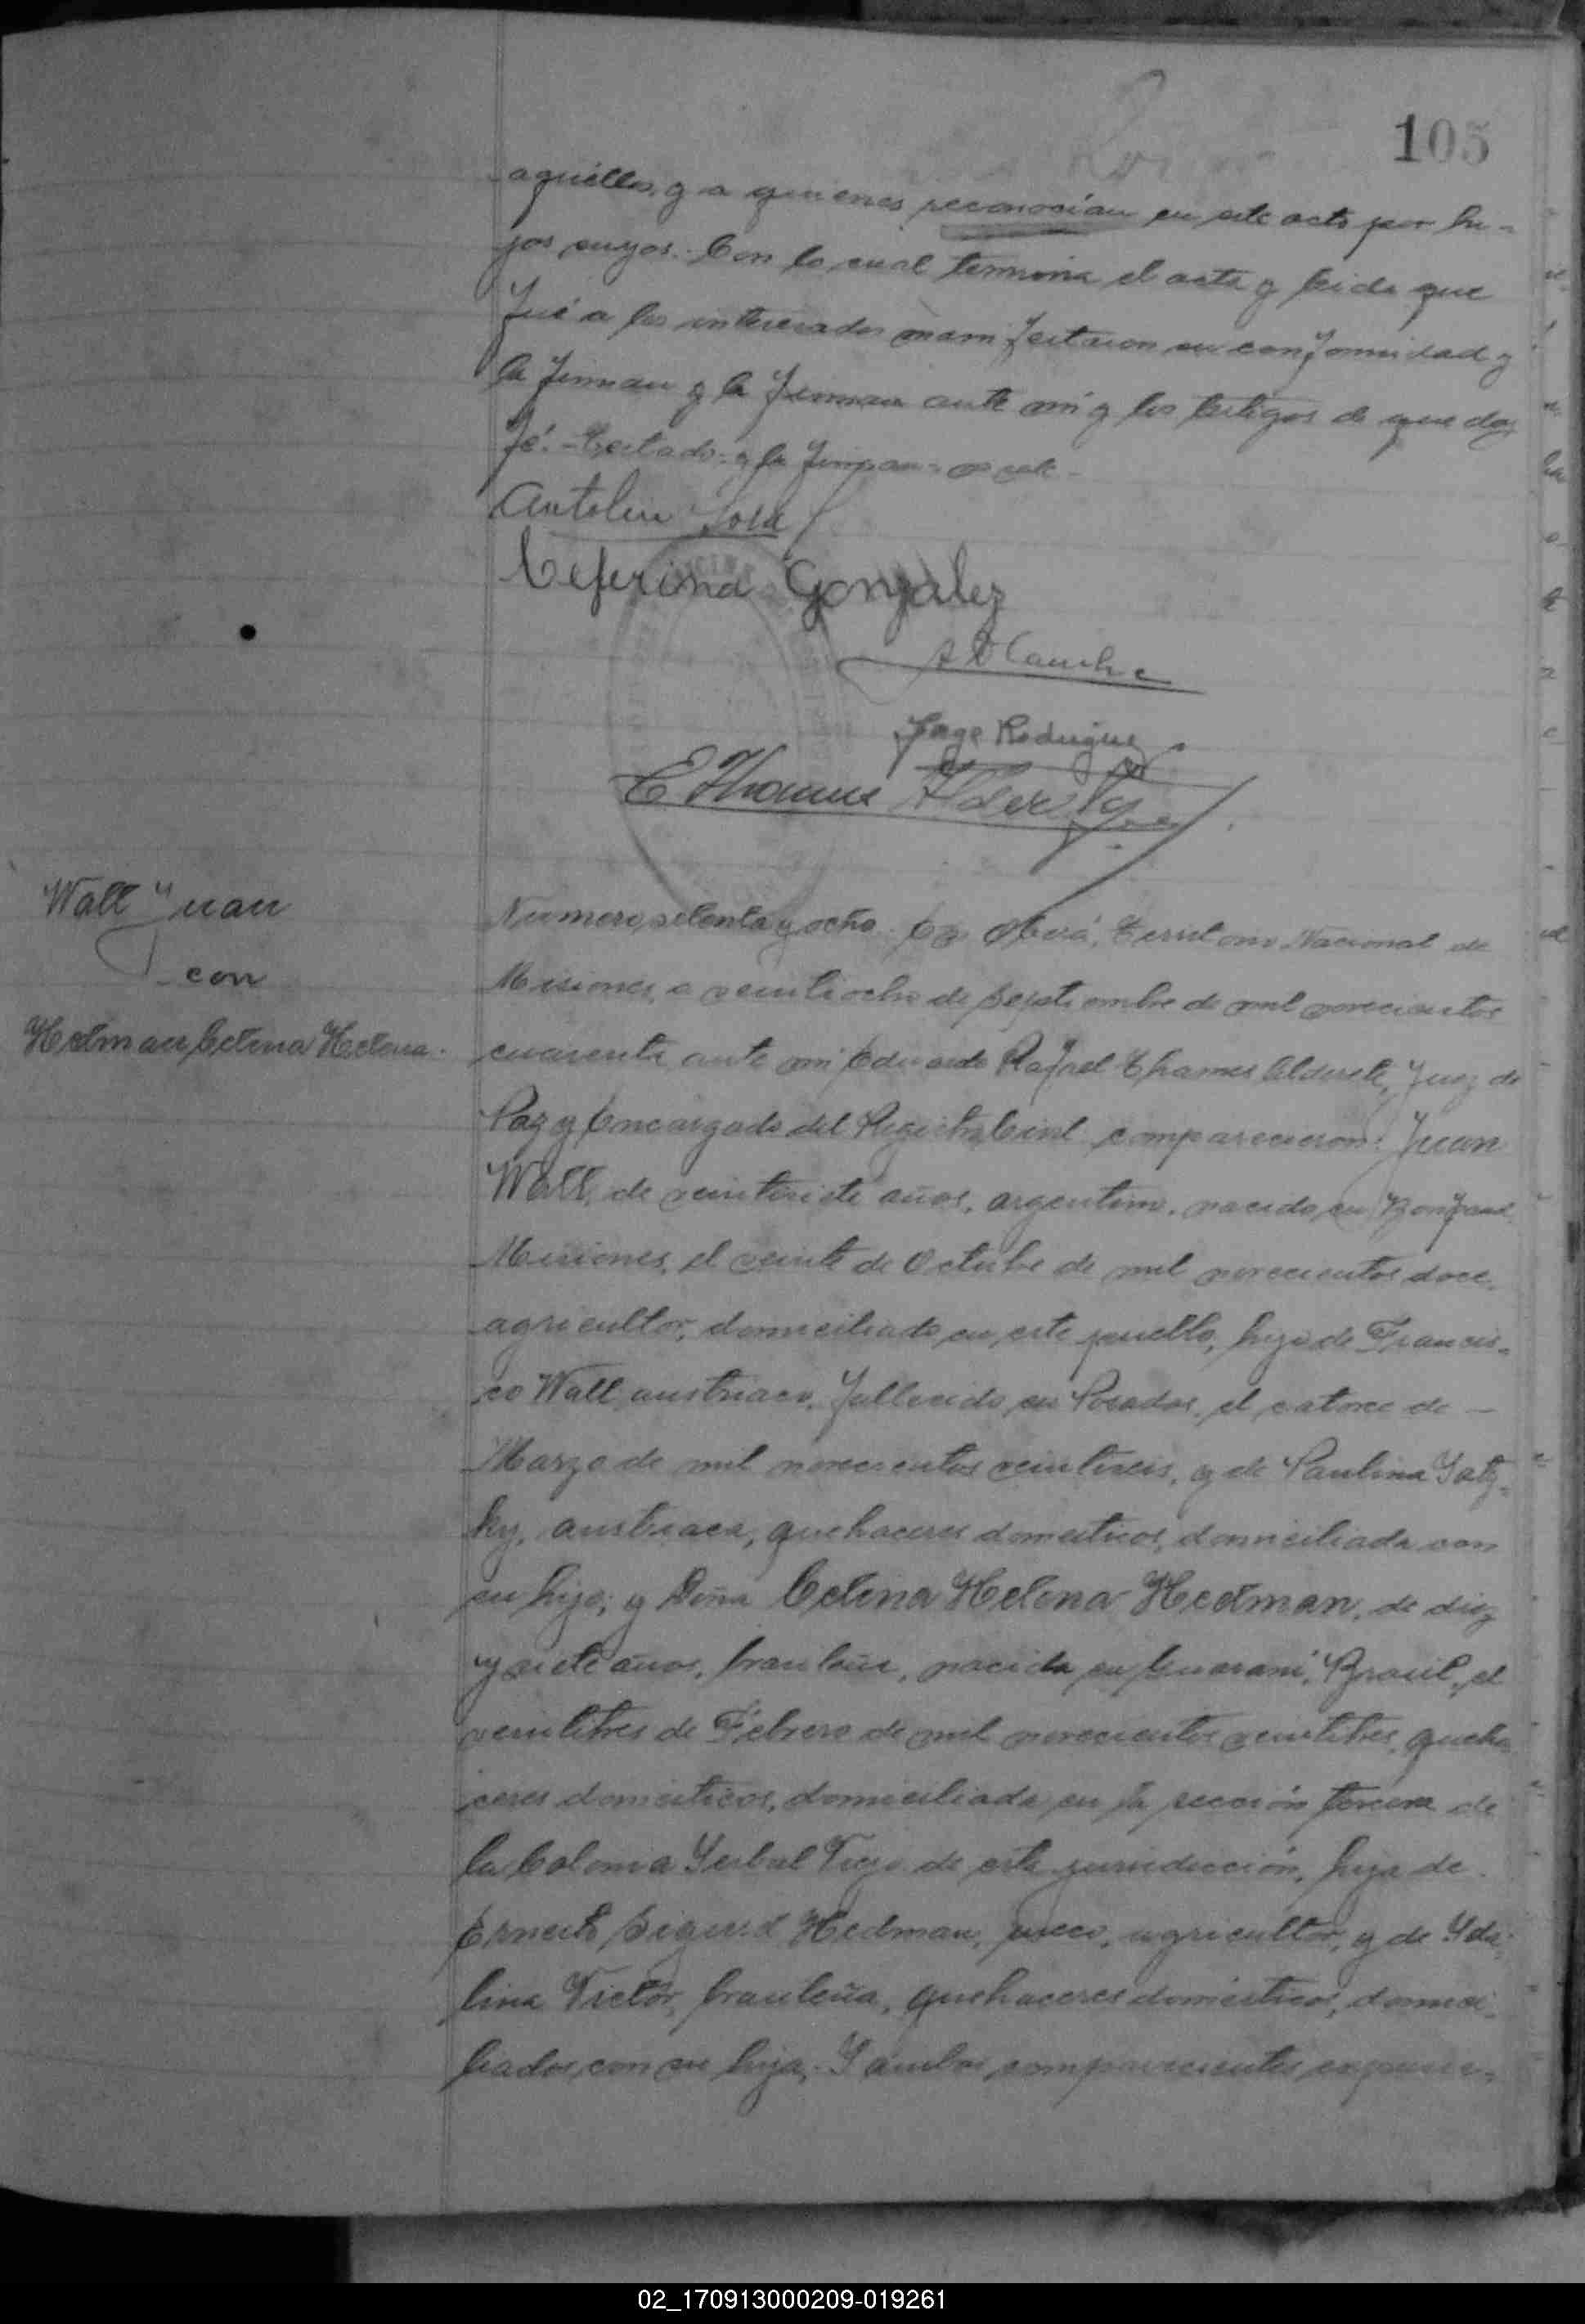 105
aquéllos, y a quienes reconocían en este acto por hi-
jos suyos. Con lo cual termina el acta y leida que
fué a los interesados manifestaron su conformidad y
la firman y la firman ante mí y los testigos de que doy
fé. - Testado: y la firman: no vale -
Antolin Sosa
Ceferina Gonzalez
Jorge Rodriguez
E Thames Alderete
Wall Juan
con
Hedman Celina Helena.
Número setenta y ocho. En Oberá, Territorio Nacional de
Misiones, a veintiocho de Septiembre de mil novecientos
cuarenta, ante mi Eduardo Rafael Thames Alderete, Juez de
Paz y Encargado del Registro Civil comparecieron: Juan
Wall, de veintisiete años, argentino, nacido en Bonpland
Misiones, el veinte de Octubre de mil novecientos doce,
agricultor, domiciliado en este pueblo, hijo de Francis-
co Wall, austriaco, fallecido en Posadas, el catorce de -
Marzo de mil novecientos veintiseis, y de Paulina
ky, austriaca, quehaceres domesticos, domiciliada con
su hijo; y Doña Celina Helena Hedman, de diez
y siete años, brasileña, nacida en Guaraní, Brasil, el
veintitres de Febrero de mil novecientos veintitres, queha
ceres domésticos, domiciliada en la sección tercera de
la Colonia Yerbal Viejo de esta jurisdicción, hija de
Ernesto Sigurd Hedman, sueco, agricultor, y de Yda-
lina Victor, brasileña, quehaceres domésticos, domici-
liados con su hija. Y ambos comparecientes expusie-
02_170913000209-019261